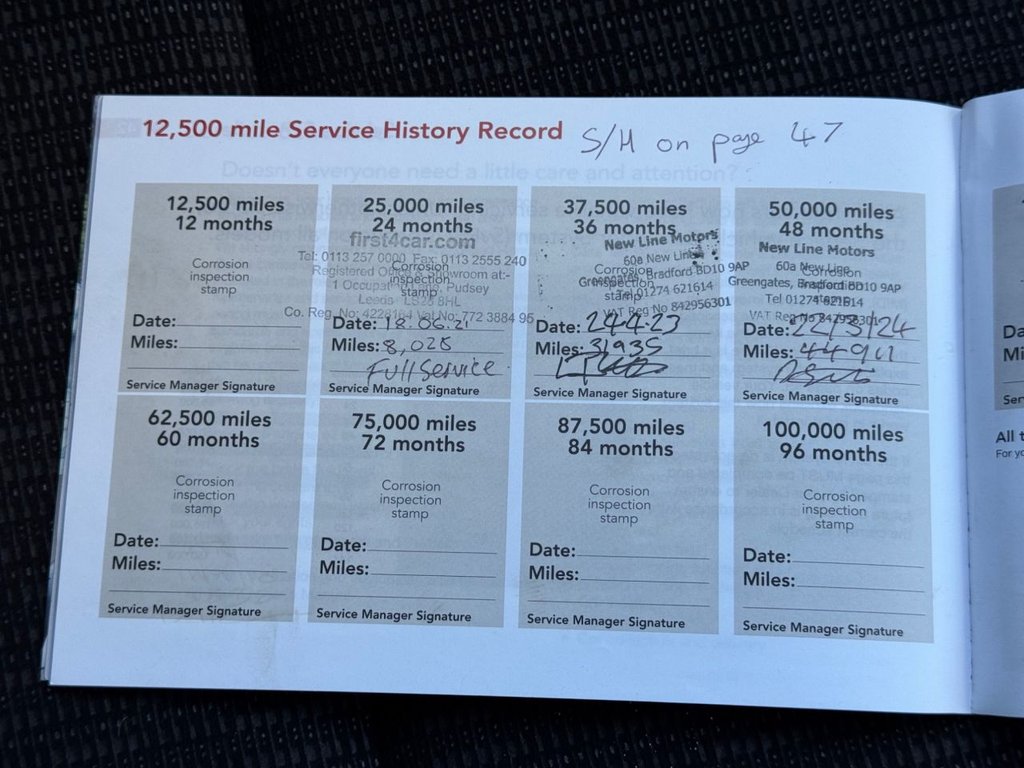 12,500 mile Service History Record S/H on page 47
Doesn't everyone need a little care and attention?
12,500 miles
12 months
Corrosion
inspection
stamp
Date:
Miles:
Service Manager Signature
25,000 miles
24 months
first4car.com
Tel: 0113 257 0000 Fax: 0113 2555 240
Registered Office & Showroom at:-
1 Occupation Pudsey
Leeds LS28 8HL
Co. Reg. No: 4228164 Vat No: 772 3884 95
Corrosion
inspection
stamp
Date: 18.06.21
Miles: 8,025
Full Service
Service Manager Signature
37,500 miles
36 months
New Line Motors
60a New Line
Greengates, Bradford BD10 9AP
Tel 01274 621614
VAT Reg No 842956301
Corrosion
inspection
stamp
Date: 24.4.23
Miles: 31935
Service Manager Signature
50,000 miles
48 months
New Line Motors
60a New Line
Greengates, Bradford BD10 9AP
Tel 01274 621614
VAT Reg No 842956301
Corrosion
stamp
Date: 22/3/24
Miles: 44961
Service Manager Signature
62,500 miles
60 months
Corrosion
inspection
stamp
Date:
Miles:
Service Manager Signature
75,000 miles
72 months
Corrosion
inspection
stamp
Date:
Miles:
Service Manager Signature
87,500 miles
84 months
Corrosion
inspection
stamp
Date:
Miles:
Service Manager Signature
100,000 miles
96 months
Corrosion
inspection
stamp
Date:
Miles:
Service Manager Signature
Da
Mi
Ser
All t
For yo